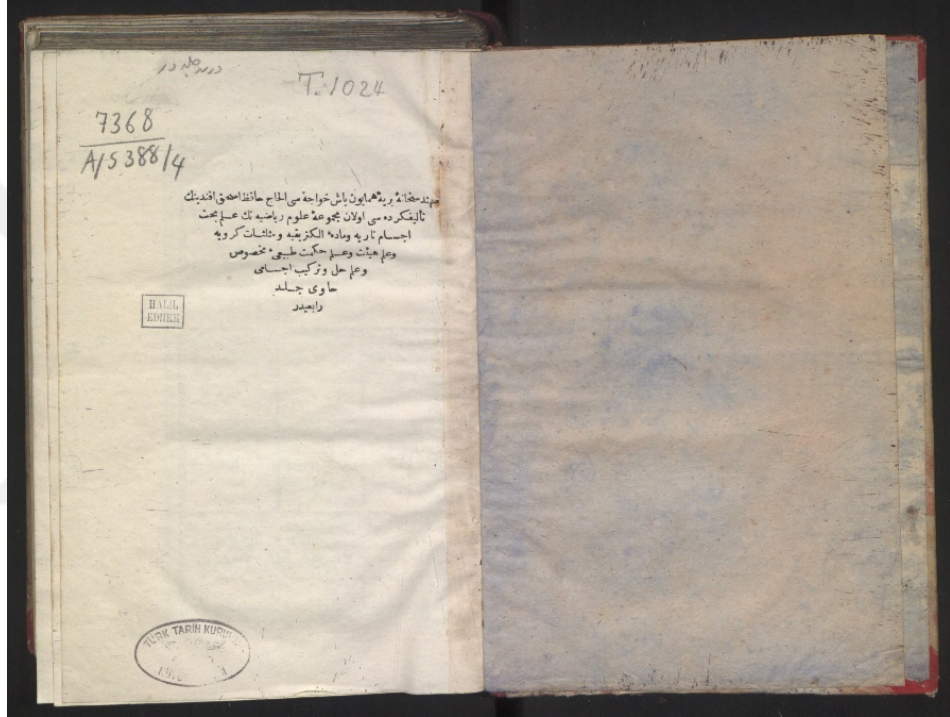 T. 1024
7368
A/5388/4
مهندسخانهٔ بریهٔ همایون باش خواجه سی الحاج حافظ اسحق افندینك
تألیفکرده سی اولان مجموعهٔ علوم ریاضیه نك علم بحث
اجسام ناریه ومادهٔ الکتریقیه ومثلثات کرویه
وعلم هیئت وعلم حکمت طبیعیهٔ مخصوص
وعلم حل وترکیب اجسامی
حاوی جلد
رابعیدر
HALİL
EDHEM
TÜRK TARİH KURUMU